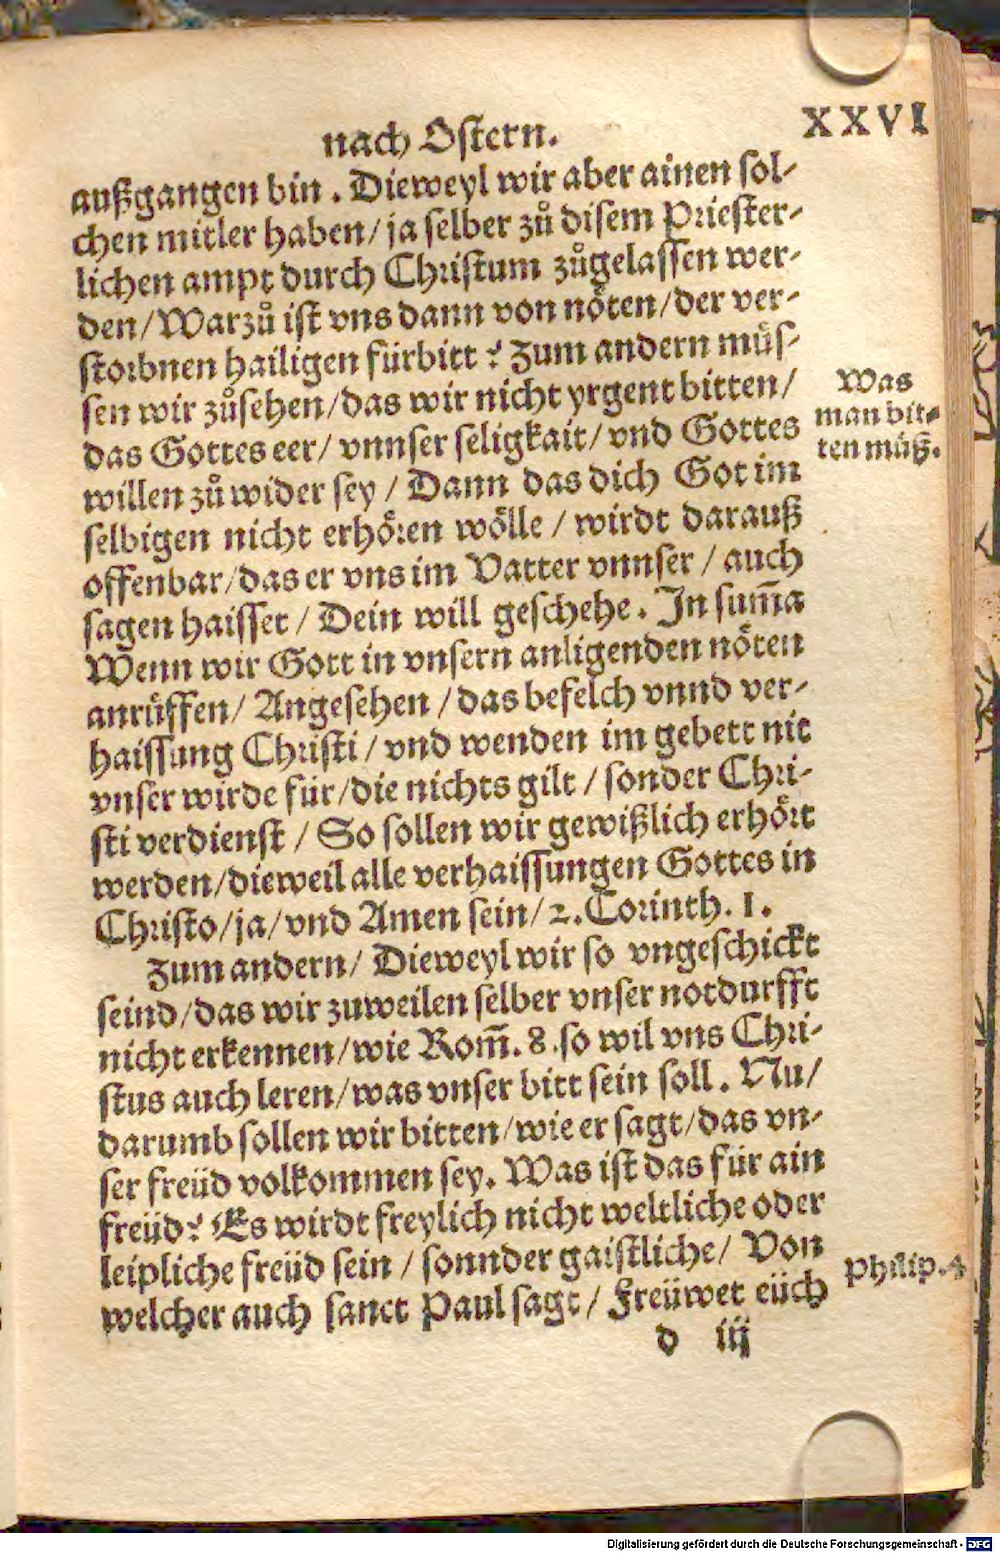 nach Ostern.
XXVI
außgangen bin. Dieweyl wir aber ainen sol-
chen mitler haben/ ja selber zů disem Priester-
lichen ampt durch Christum zůgelassen wer-
den/ Warzů ist vns dann von nöten/ der ver-
storbnen hailigen fürbitt? Zum andern müs-
sen wir zůsehen/ das wir nicht yrgent bitten/
das Gottes eer/ vnnser seligkait/ vnd Gottes
willen zů wider sey/ Dann das dich Got im
selbigen nicht erhören wölle/ wirdt darauß
offenbar/ das er vns im Vatter vnnser/ auch
sagen haisset/ Dein will geschehe. In sum̄a
Wenn wir Gott in vnsern anligenden nöten
anrüffen/ Angesehen/ das befelch vnnd ver-
haissung Christi/ vnd wenden im gebett nit
vnser wirde für/ die nichts gilt/ sonder Chri-
sti verdienst/ So sollen wir gewißlich erhört
werden/ dieweil alle verhaissungen Gottes in
Christo/ ja/ vnd Amen sein/ 2. Corinth. 1.
Zum andern/ Dieweyl wir so vngeschickt
seind/ das wir zuweilen selber vnser notdurfft
nicht erkennen/ wie Rom̄. 8. so wil vns Chri-
stus auch leren/ was vnser bitt sein soll. Nu/
darumb sollen wir bitten/ wie er sagt/ das vn-
ser freüd volkommen sey. Was ist das für ain
freüd? Es wirdt freylich nicht weltliche oder
leipliche freüd sein/ sonnder gaistliche/ Von
welcher auch sanct Paul sagt/ Freüwet eüch
d iij
Was
man bit-
ten müß.
Philip. 4
Digitalisierung gefördert durch die Deutsche Forschungsgemeinschaft - DFG